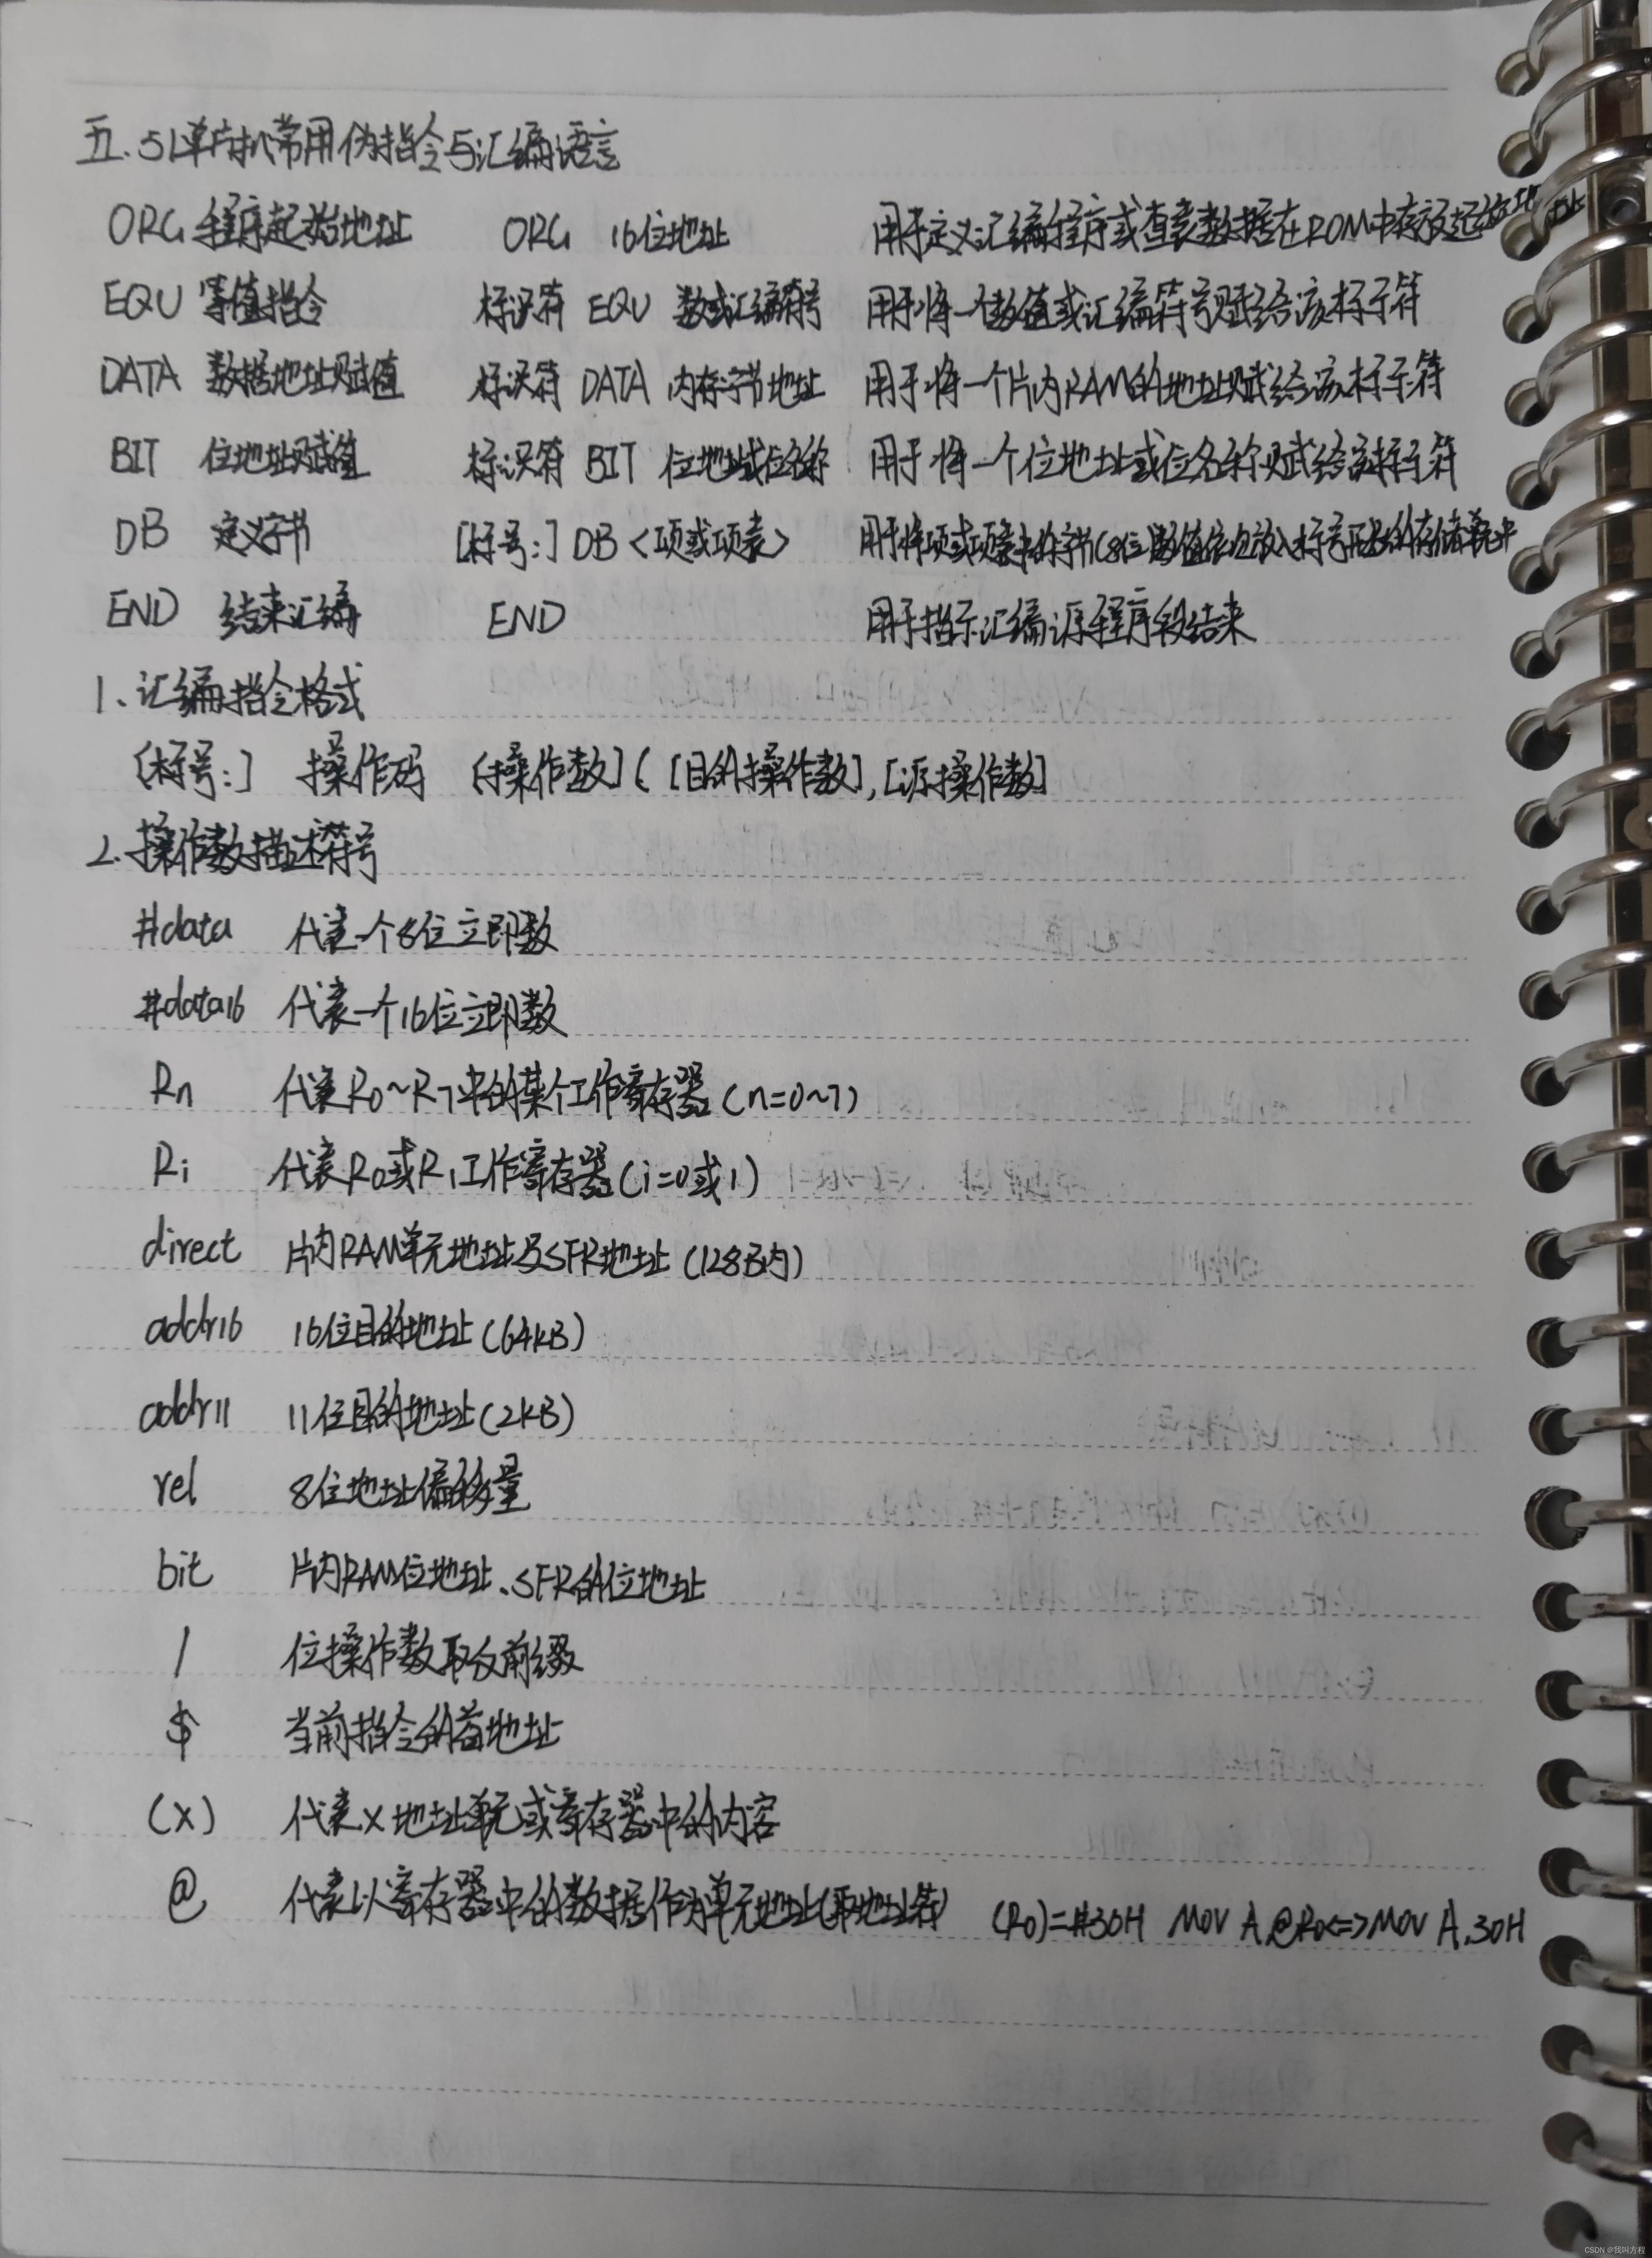 五. 51单片机常用伪指令与汇编语言
ORG 程序起始地址 ORG 16位地址 用于定义汇编程序或查表数据在ROM中存放起始地址
EQU 等值指令 标识符 EQU 数或汇编符号 用于将一个数值或汇编符号赋给该标示符
DATA 数据地址赋值 标识符 DATA 内存字节地址 用于将一个片内RAM的地址赋给该标示符
BIT 位地址赋值 标识符 BIT 位地址或位名称 用于将一个位地址或位名称赋给该标示符
DB 定义字节 [标号:] DB <项或项表> 用于将项或项表中的字节(8位)数值依次放入标号开始的存储单元中
END 结束汇编 END 用于指示汇编源程序段结束
1. 汇编指令格式
[标号:] 操作码 [操作数] ( [目的操作数],[源操作数]
2. 操作数描述符号
#data 代表一个8位立即数
#data16 代表一个16位立即数
Rn 代表R0~R7中的某个工作寄存器(n=0~7)
Ri 代表R0或R1工作寄存器(i=0或1)
direct 片内RAM单元地址及SFR地址(128B内)
addr16 16位目的地址(64KB)
addr11 11位目的地址(2KB)
rel 8位地址偏移量
bit 片内RAM位地址、SFR的位地址
/ 位操作数取反前缀
$ 当前指令的首地址
(X) 代表X地址单元或寄存器中的内容
@ 代表以寄存器中的数据作为单元地址(取地址符) (R0)=#30H MOV A,@R0<=>MOV A,30H
CSDN @我叫方程